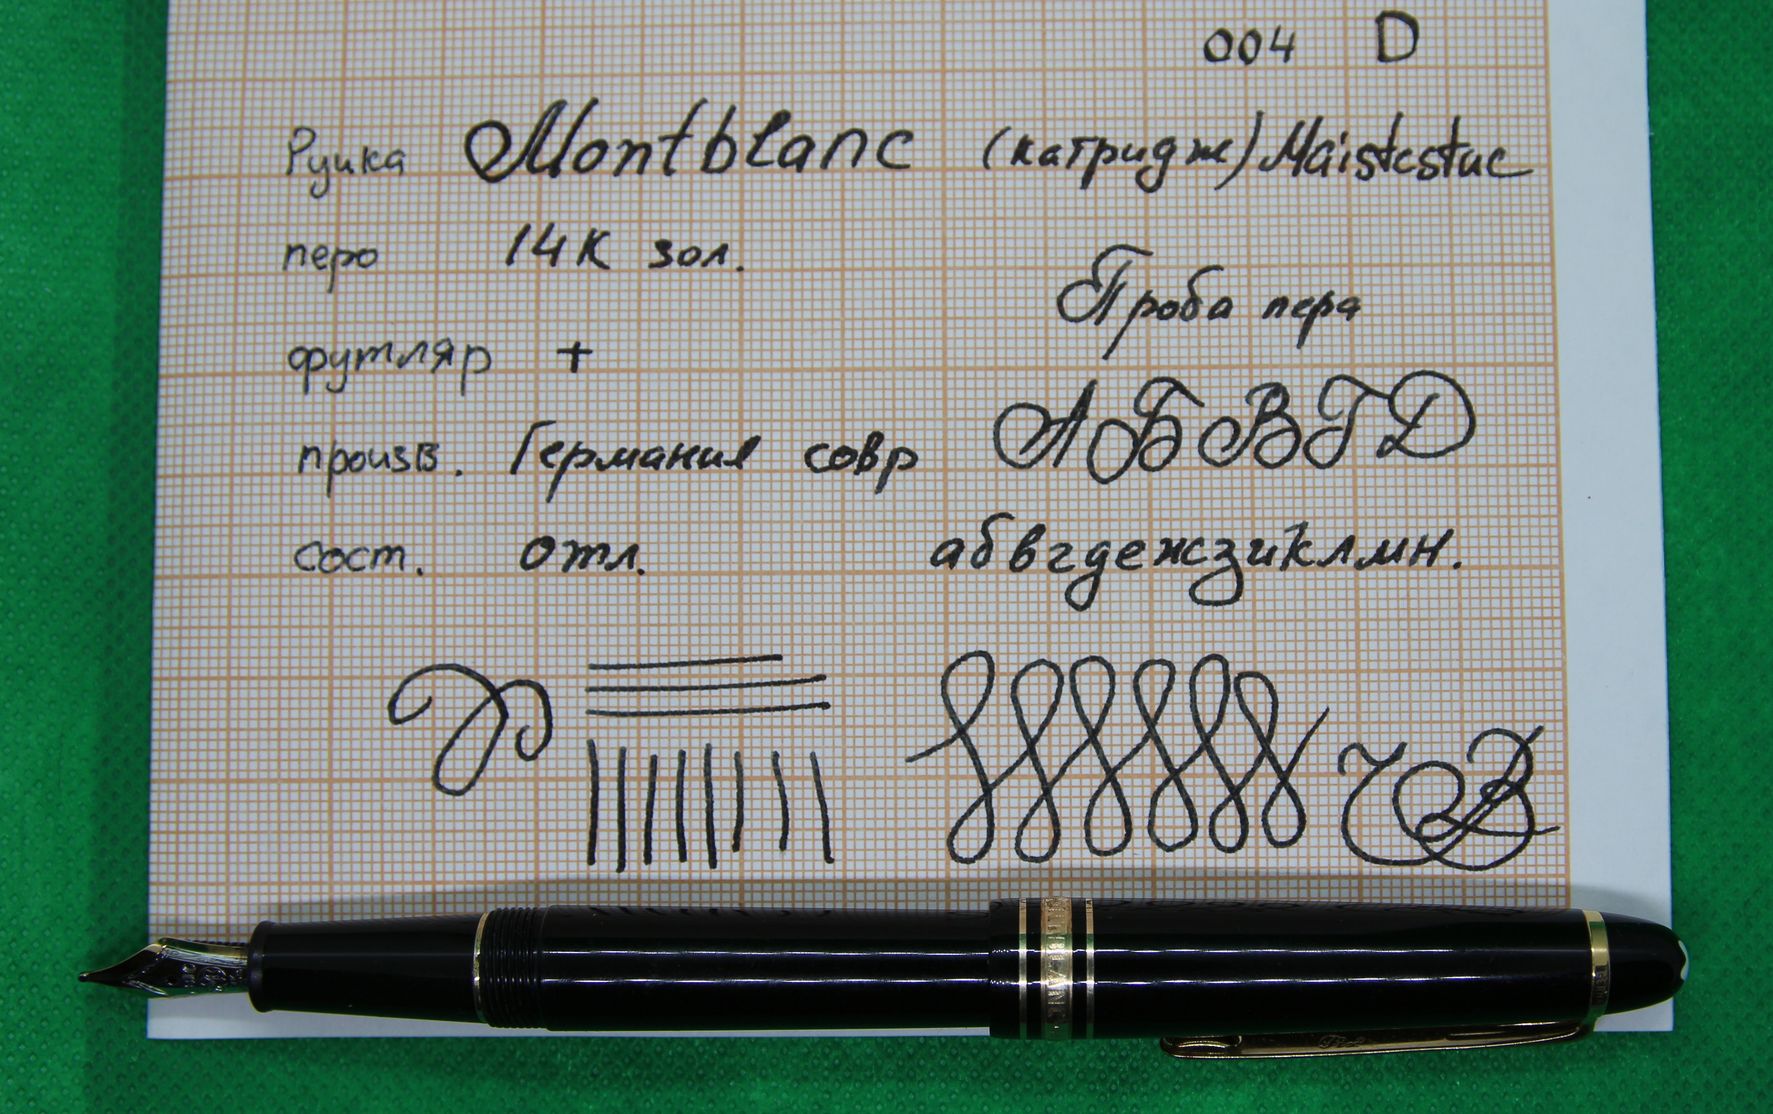 004 D
Ручка Montblanc (катридж) Maistestuc
перо 14К зол.
Проба пера
футляр +
АБВГД
произв. Германия совр
сост. отл.
абвгдежзиклмн.